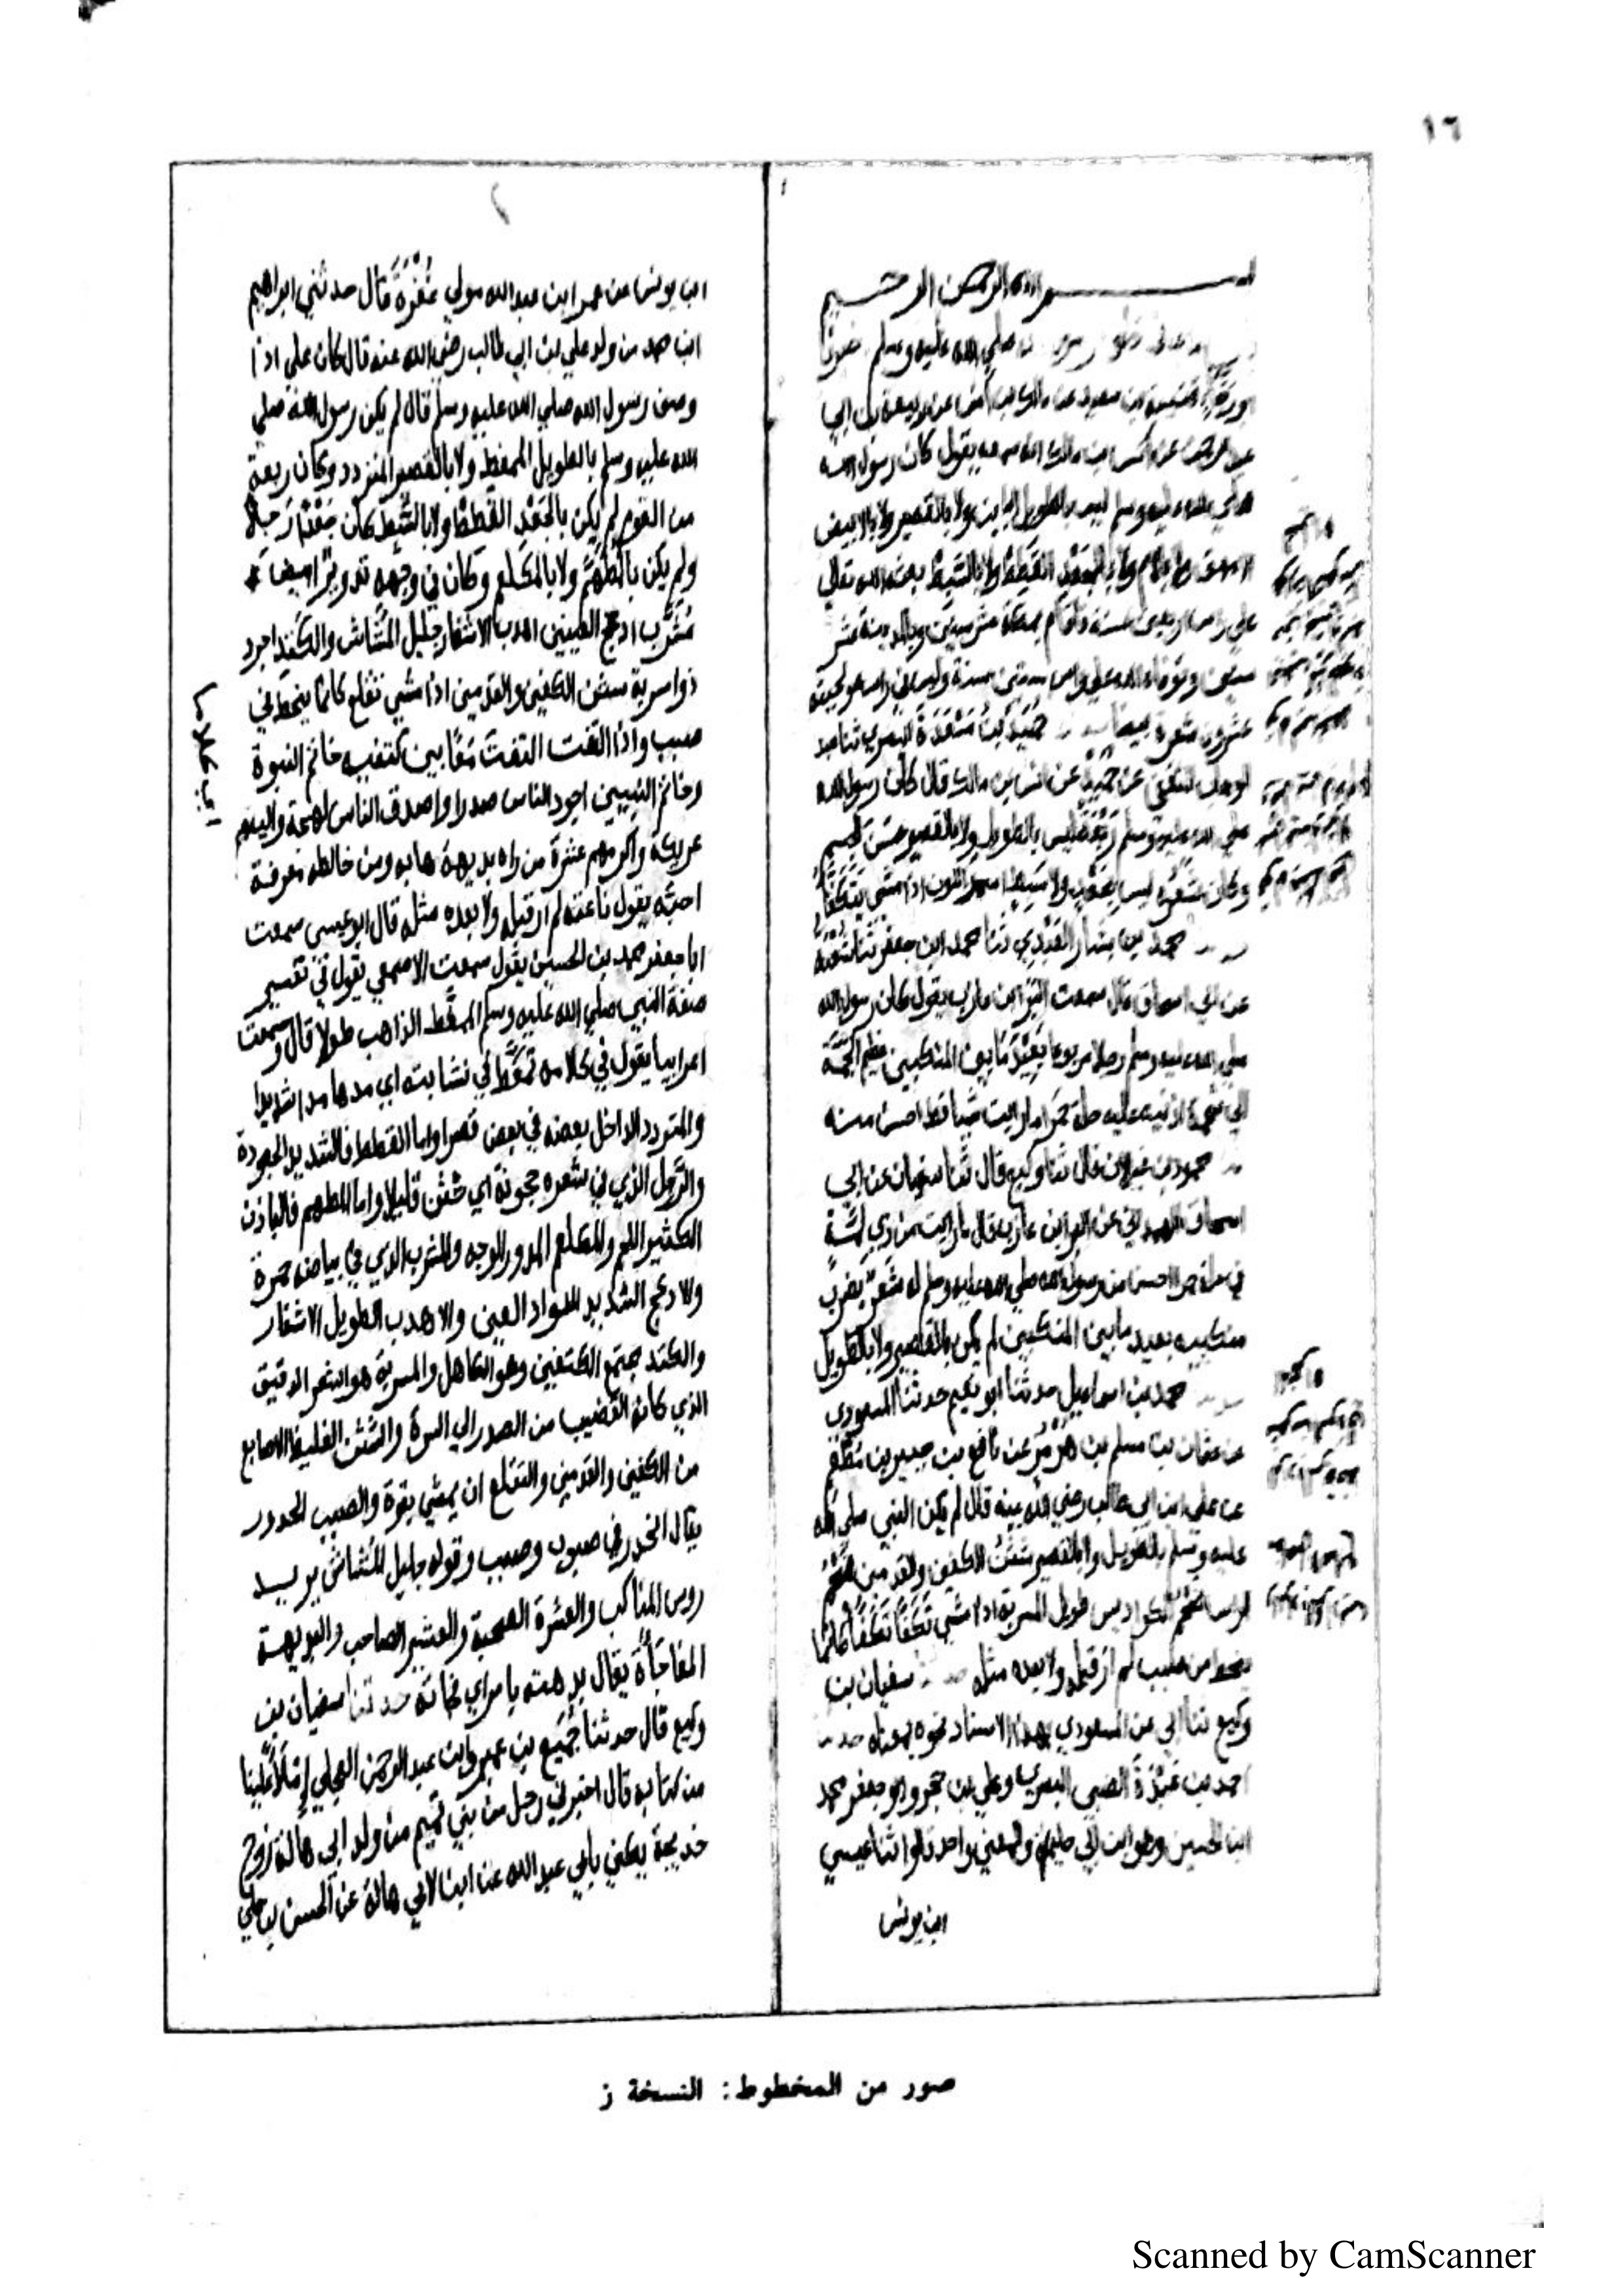 ١٦
بسم الله الرحمن الرحيم
صلى الله عليه وسلم
قتيبة بن سعيد عن مالك بن أنس عن ربيعة بن ابي
عبد الرحمن عن انس بن مالك انه سمعه يقول كان رسول الله
صلى الله عليه وسلم ليس بالطويل الباين ولا بالقصير ولا بالابيض
الامهق ولا بالادم ولا بالجعد القطط ولا بالسبط بعثه الله تعالى
على راس اربعين سنة فاقام بمكة عشر سنين وبالمدينة عشر
سنين وتوفاه الله على راس ستين سنة وليس في راسه ولحيته
عشرون شعرة بيضا حميد بن مسعدة البصري ثنا عبد
الوهاب الثقفي عن حميد عن انس بن مالك قال كان رسول الله
صلى الله عليه وسلم ربعة ليس بالطويل ولا بالقصير حسن الجسم
وكان شعره ليس بجعد ولا سبط اسمر اللون اذا مشى يتكفأ
محمد بن بشار العبدي ثنا محمد ابن جعفر ثنا شعبة
عن ابي اسحاق قال سمعت البرا ابن عازب يقول كان رسول الله
صلى الله عليه وسلم رجلا مربوعا بعيد ما بين المنكبين عظيم الجمة
الى شحمة اذنيه عليه حلة حمرا ما رايت شيا قط احسن منه
محمود بن غيلان قال ثنا وكيع قال ثنا سفيان عن ابي
اسحاق الهمداني عن البرا ابن عازب قال ما رايت من ذي لمة
في حلة حمرا احسن من رسول الله صلى الله عليه وسلم له شعر يضرب
منكبيه بعيد ما بين المنكبين لم يكن بالقصير ولا بالطويل
محمد بن اسماعيل حدثنا ابو نعيم حدثنا المسعودي
عن عثمان بن مسلم بن هرمز عن نافع بن جبير بن مطعم
عن علي ابن ابي طالب رضي الله عنه قال لم يكن النبي صلى الله
عليه وسلم بالطويل ولا بالقصير شثن الكفين والقدمين ضخم
الراس ضخم الكراديس طويل المسربة اذا مشى تكفأ تكفأ كانما
ينحط من صبب لم ار قبله ولا بعده مثله سفيان بن
وكيع ثنا ابي عن المسعودي بهذا الاسناد نحوه بمعناه حدثنا
احمد بن عبدة الضبي البصري وعلي بن حجر وابو جعفر محمد
ابن الحسين وهو ابن ابي حليمة والمعني واحد قالوا ثنا عيسي
ابن يونس
٢
ابن يونس عن عمر ابن عبد الله مولي غفرة قال حدثني ابراهيم
ابن محمد من ولد علي بن ابي طالب رضي الله عنه قال كان علي اذا
وصف رسول الله صلي الله عليه وسلم قال لم يكن رسول الله صلي
الله عليه وسلم بالطويل الممغط ولا بالقصير المتردد وكان ربعة
من القوم لم يكن بالجعد القطط ولا بالسبط كان جعدا رجلا
ولم يكن بالمطهم ولا بالمكلثم وكان في وجهه تدوير ابيض
مشرب ادعج العينين اهدب الاشفار جليل المشاش والكتد اجرد
ذو مسربة شثن الكفين والقدمين اذا مشي تقلع كانما ينحط في
صبب واذا التفت التفت معا بين كتفيه خاتم النبوة
وخاتم النبيين اجود الناس صدرا واصدق الناس لهجة والينهم
عريكة واكرمهم عشرة من راه بديهة هابه ومن خالطه معرفة
احبه يقول ناعته لم ار قبله ولا بعده مثله قال ابو عيسى سمعت
ابا جعفر محمد بن الحسين يقول سمعت الاصمعي يقول في تفسير
صفة النبي صلي الله عليه وسلم الممغط الذاهب طولا قال وسمعت
اعرابيا يقول في كلامه تمغط في نشابته اي مدها مدا شديدا
والمتردد الداخل بعضه في بعض قصرا واما القطط فالشديد الجعودة
والرجل الذي في شعره حجونة اي تثن قليلا واما المطهم فالبادن
الكثير اللحم والمكلثم المدور الوجه والمشرب الذي في بياضه حمرة
والادعج الشديد السواد العين والاهدب الطويل الاشفار
والكتد مجتمع الكتفين وهو الكاهل والمسربة هو الشعر الدقيق
الذي كانه القضيب من الصدر الي السرة والشثن الغليظ الاصابع
من الكفين والقدمين والتقلع ان يمشي بقوة والصبب الحدور
يقال انحدر في صبوب وصبب وقوله جليل المشاش يريد
روس المناكب والعشرة الصحبة والعشير الصاحب والبديهة
المفاجأة يقال بدهته بامر اي فجاته حدثنا سفيان بن
وكيع قال حدثنا جميع بن عمير ابن عبد الرحمن العجلي إملاء علينا
من كتابه قال اخبرني رجل من بني تميم من ولد ابي هالة زوج
خديجة يكني بابي عبد الله عن ابن لابي هالة عن الحسن بن علي
صور من المخطوط: النسخة ز
Scanned by CamScanner